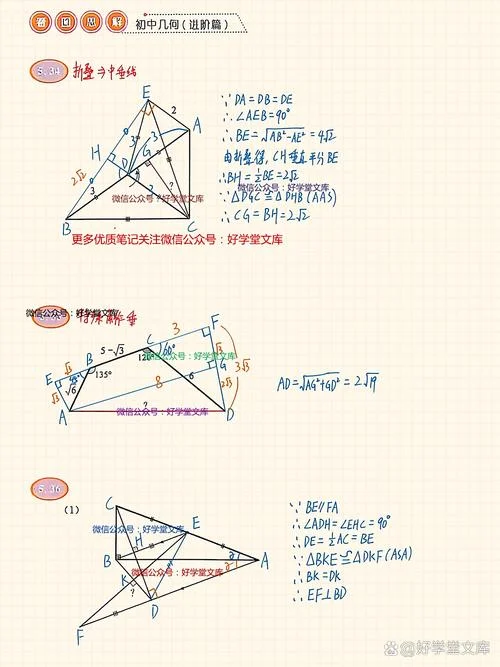 看图思解 初中几何(进阶篇)
5.34 折叠⇒中垂线
E
2
A
3
3
G
H
D
2√2
3
?
微信公众号:好学堂文库
B
C
∵ DA=DB=DE
∴ ∠AEB=90°
∴ BE=√AB²-AE²=4√2
由折叠得,CH垂直平分BE
∴ BH=½BE=2√2
微信公众号:好学堂文库
∵ △DGC≌△DHB(AAS)
∴ CG=BH=2√2
更多优质笔记关注微信公众号:好学堂文库
微信公众号:好学堂文库
作垂
3
F
5-√3
C
120°
60°
微信公众号:好学堂文库
√3
3√3
B
E
√3
45°
135°
√6
√3
8
6
G
2√3
A
?
D
微信公众号:好学堂文库
AD=√AG²+GD²=2√19
5.36
(1)
C
微信公众号:好学堂文库
E
H
B
A
微信公众号:好学堂文库
K
?
D
F
∵ BE∥FA
∴ ∠ADH=∠EHC=90°
∴ DE=½AC=BE
∵ △BKE≌△DKF(ASA)
∴ BK=DK
∴ EF⊥BD
@好学堂文库